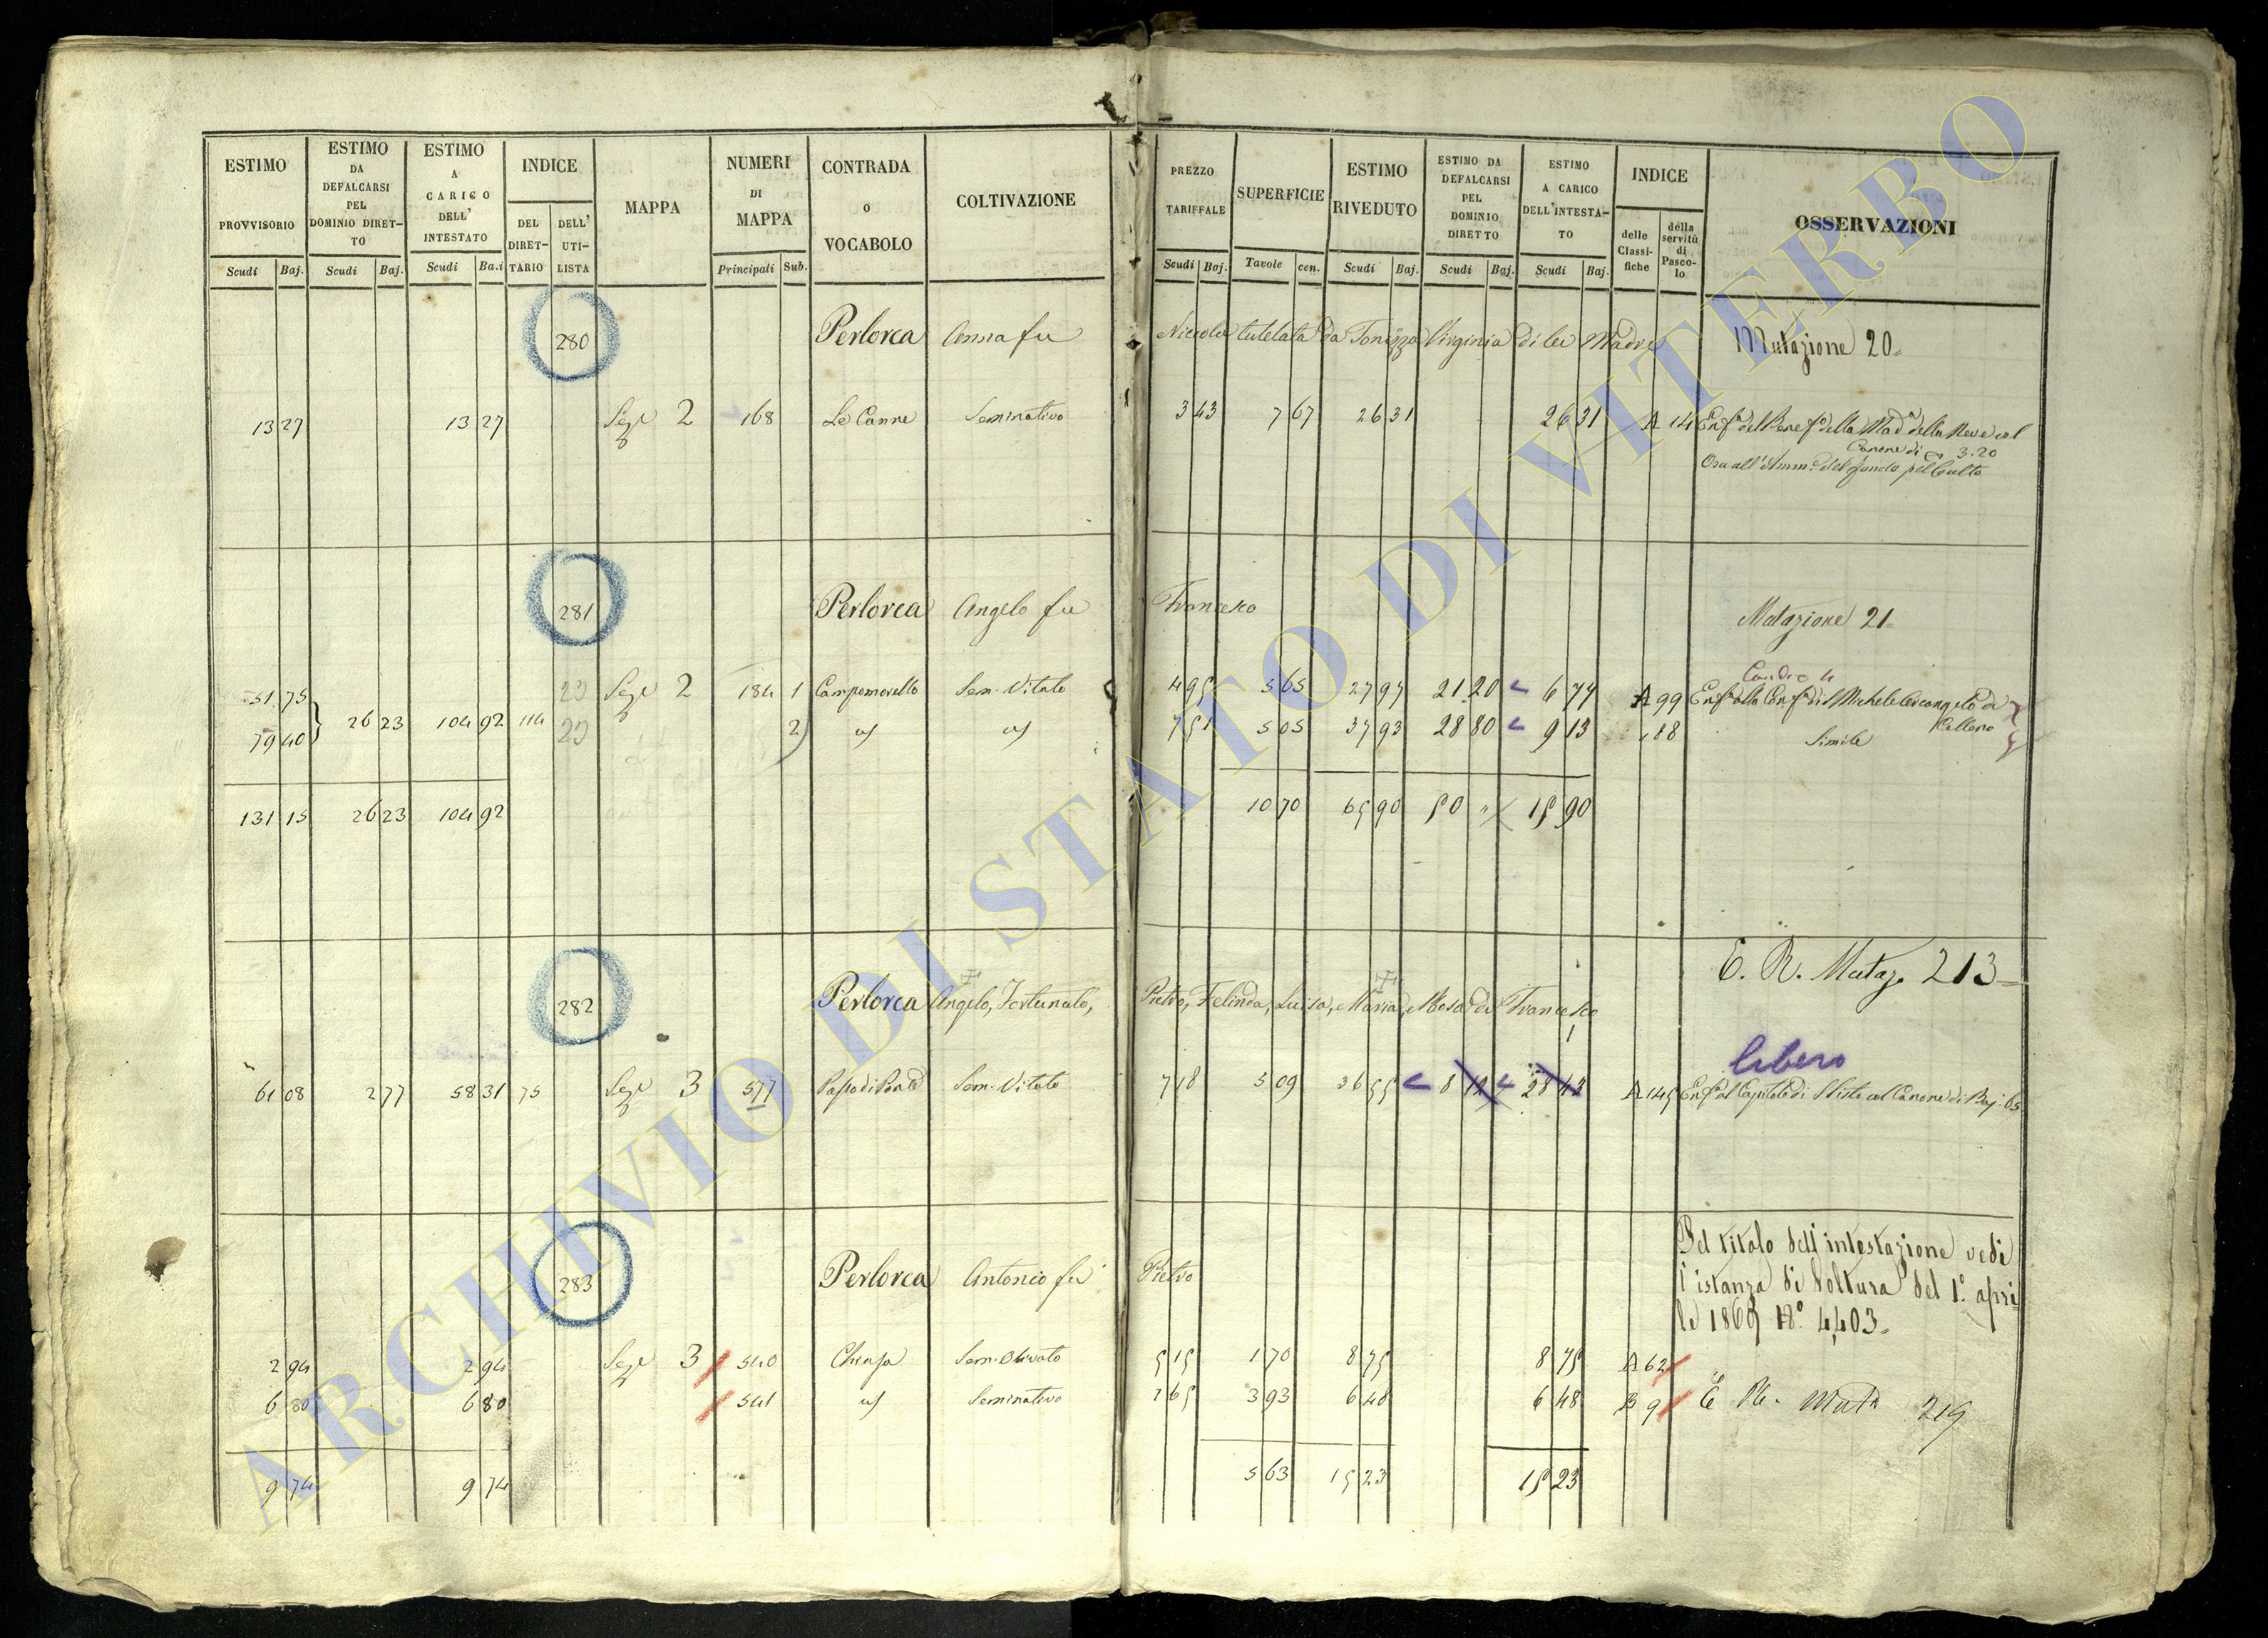 ESTIMO PROVVISORIO Scudi Baj.
ESTIMO DA DEFALCARSI PEL DOMINIO DIRETTO Scudi Baj.
ESTIMO A CARICO DELL' INTESTATO Scudi Ba.i
INDICE DEL DIRETTARIO DELL' UTILISTA
MAPPA
NUMERI DI MAPPA Principali Sub.
CONTRADA O VOCABOLO
COLTIVAZIONE
PREZZO TARIFFALE Scudi Baj.
SUPERFICIE Tavole cen.
ESTIMO RIVEDUTO Scudi Baj.
ESTIMO DA DEFALCARSI PEL DOMINIO DIRETTO Scudi Baj.
ESTIMO A CARICO DELL'INTESTATO Scudi Baj.
INDICE delle Classifiche della servitù di Pascolo
OSSERVAZIONI
280 Perlorca Anna fu Niccola tutelata da Tonizza Virginia di lei Madre Mutazione 20=
13 27 13 27 Sez.e 2 168 Le Canne Seminativo 3 43 7 67 26 31 26 31 A 14 Enf.a del Benef.o della Mad.a della Neve col
Canone di 3.20
Ora all'Amm.e del fondo pel Culto
281 Perlorca Angelo fu Francesco Mutazione 21=
51 75 20 Sez.e 2 184 1 Campomorello Sem. Vitato 4 95 5 65 27 97 21 20 6 77 A 99 Enf.a alla Conf.a di S Michele Arcangelo di
Celleno
79 40 26 23 104 92 114 20 2 7 51 5 05 37 93 28 80 9 13 88 Simile
131 15 26 23 104 92 10 70 65 90 50 " 15 90
E. R. Mutaz. 213=
282 Perlorca Angelo, Fortunato, Pietro, Felinda, Luisa, Maria, Rosa di Francesco
libero
61 08 2 77 58 31 75 Sez.e 3 577 Passo di Ponte Sem. Vitato 7 18 5 09 36 55 8 12 28 43 A 145 Enf.a al Capitolo di S Sisto col Canone di Baj. 65
283 Perlorca Antonio fu Pietro
Pel titolo dell'intestazione vedi
l'istanza di Voltura del 1.o apri
le 1869 N.o 4403=
2 94 2 94 Sez.e 3 540 Sem. Olivato 5 15 1 70 8 75 8 75 A 62
6 80 6 80 541 Seminativo 1 65 3 93 6 48 6 48 B 9 E R. Mut.a 219
9 74 9 74 5 63 15 23 15 23
ARCHIVIO DI STATO DI VITERBO